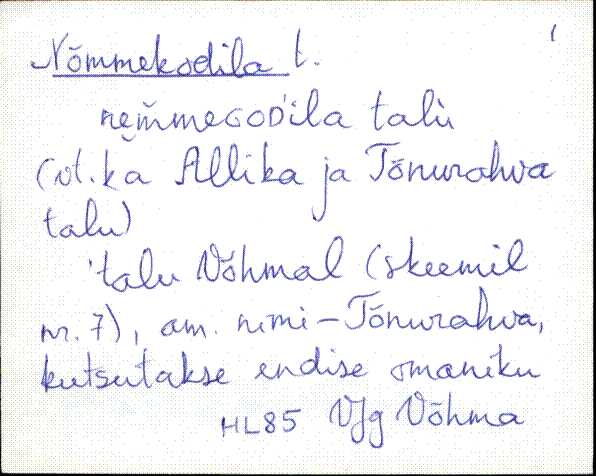 Nõmmekodila t. 1
nem̆meGOD'ila talù
(vt. ka Allika ja Tõnurahva
talu)
'talu Võhmal (skeemil
nr. 7), am. nimi - Tõnurahva,
kutsutakse endise omaniku
HL85 VJg Võhma